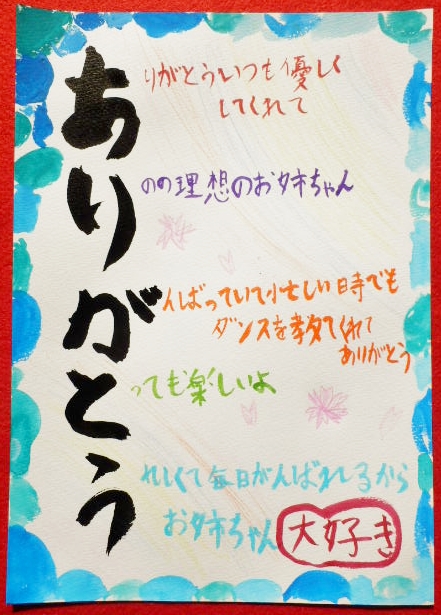 ありがとう
りがとういつも優しく
してくれて
のの理想のお姉ちゃん
んばっていて忙しい日時でも
ダンスを教えてくれて
ありがとう
っても楽しいよ
れしくて毎日がんばれるから
お姉ちゃん大好き